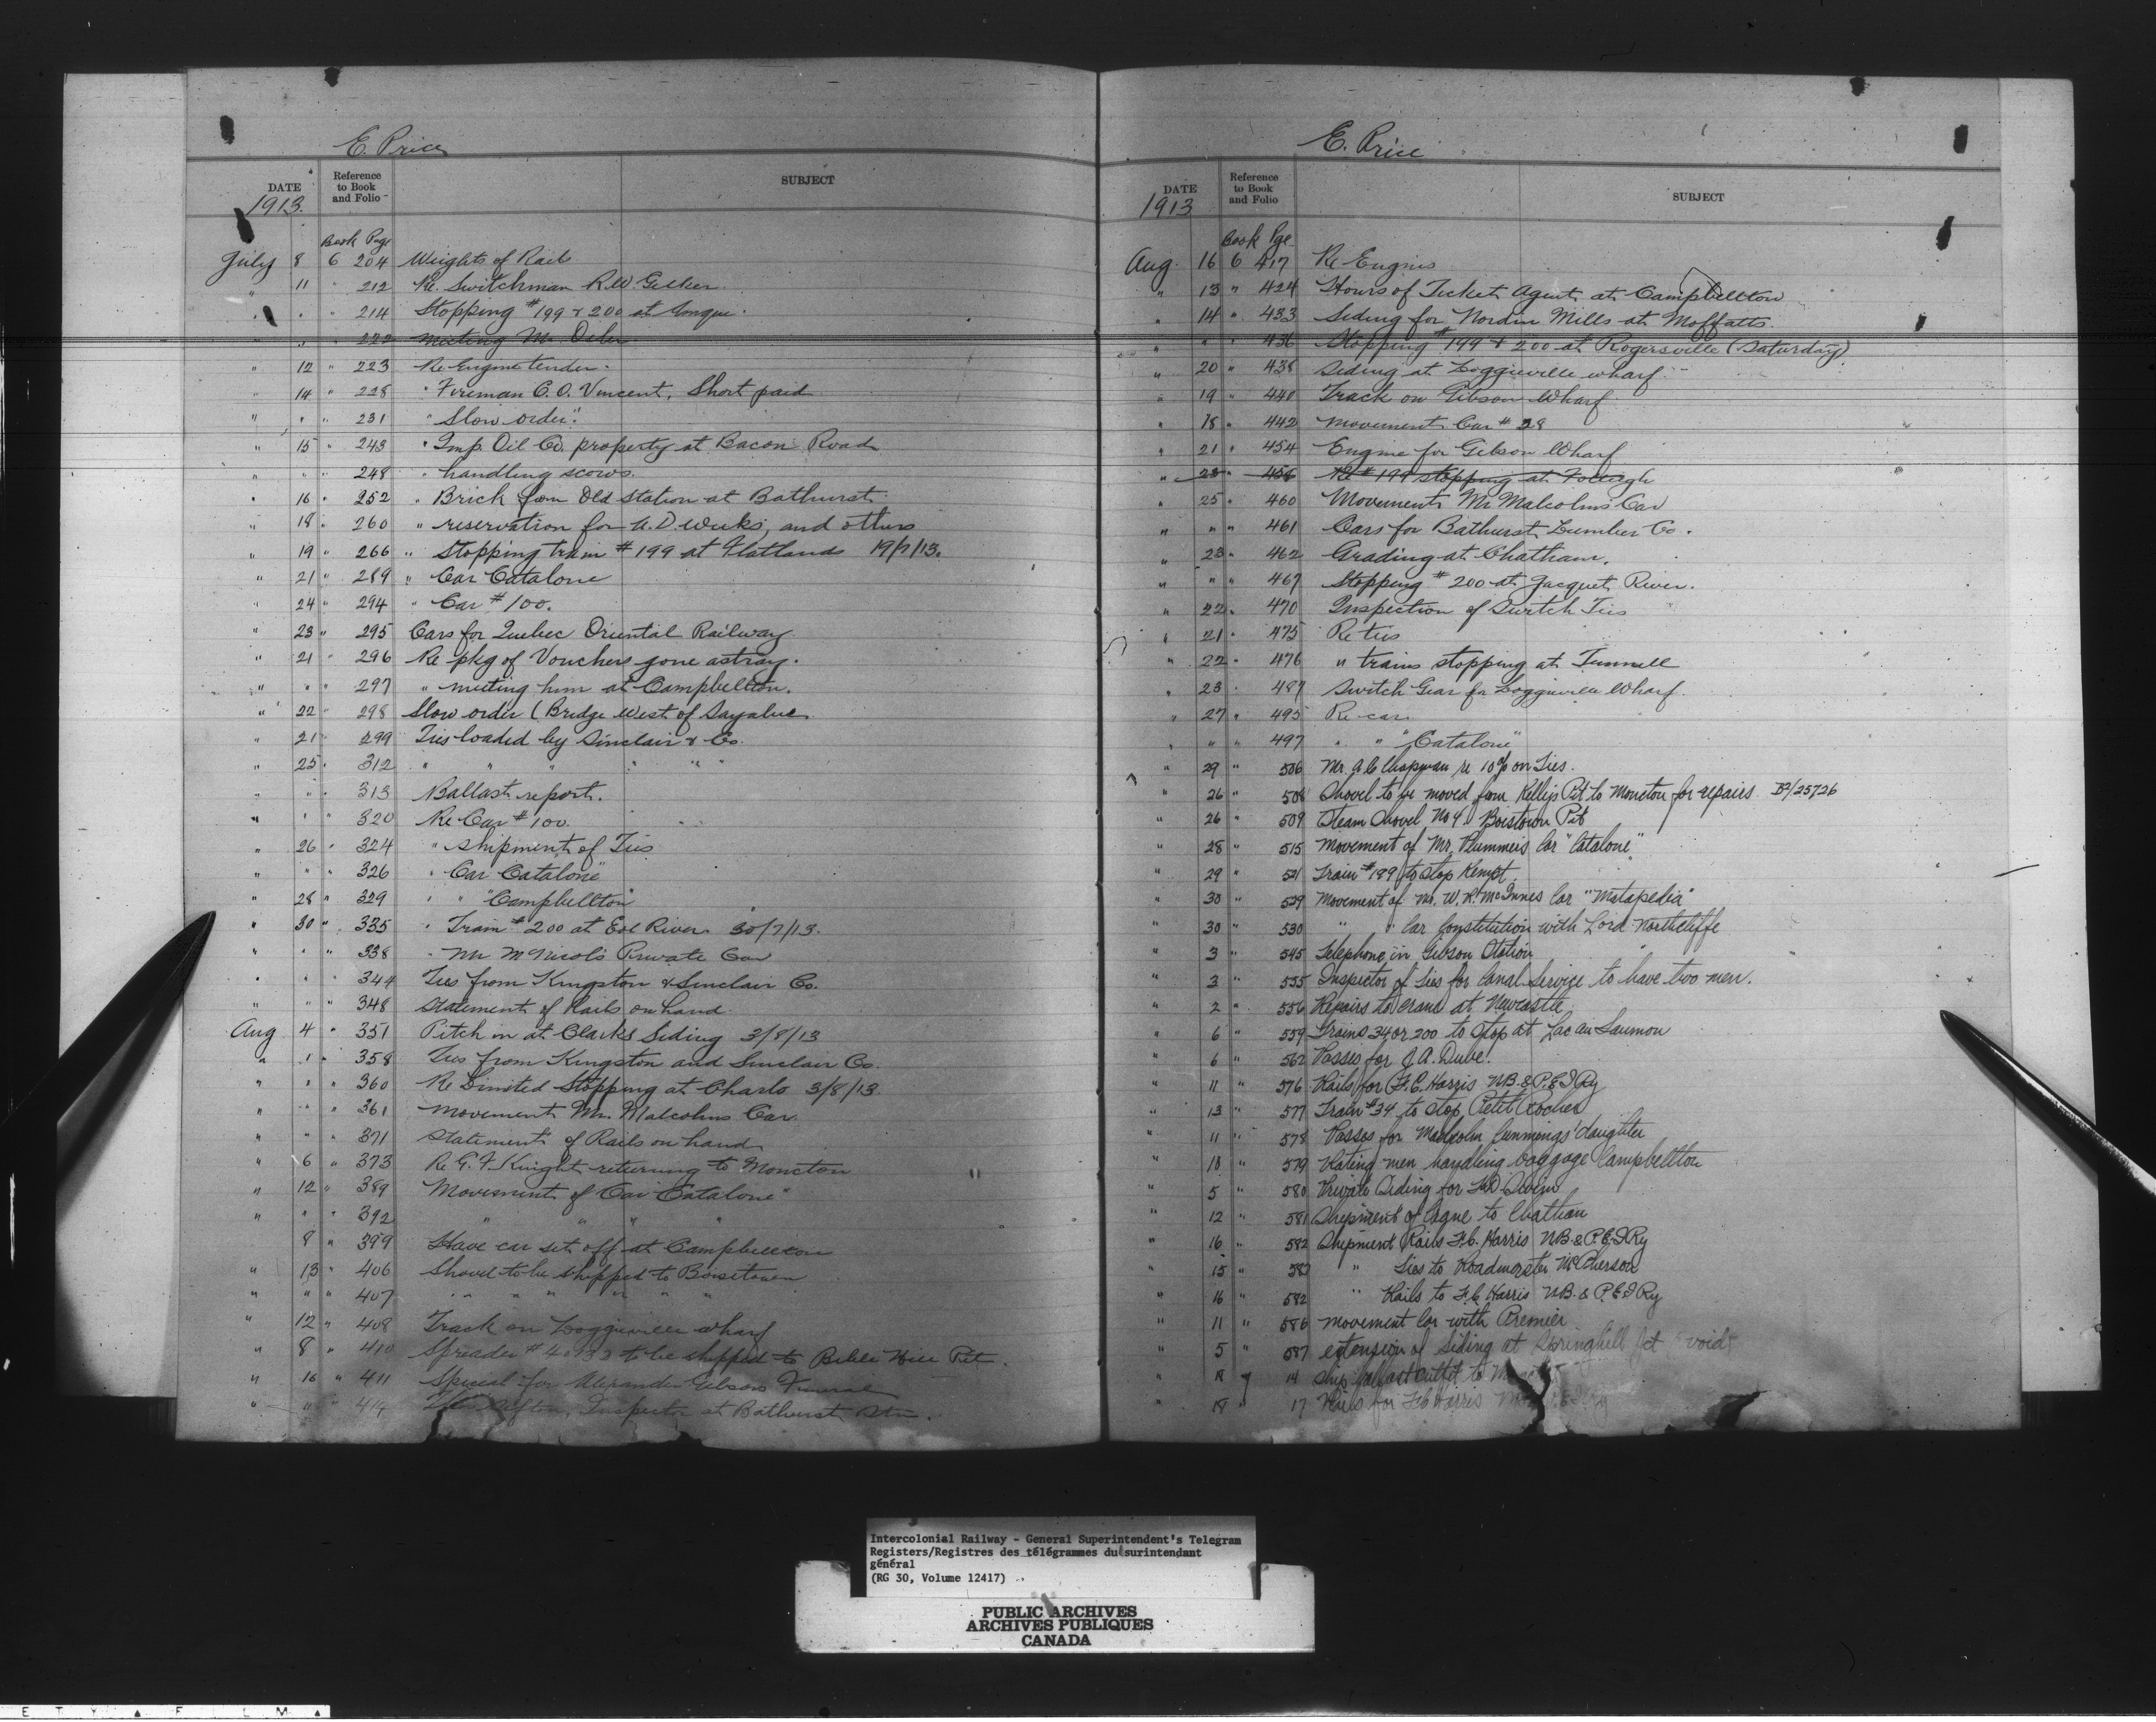 E. Price
DATE
Reference
to Book
and Folio
SUBJECT
1913.
Book Page
July 8 6 204 Weights of Rails
" 11 " 212 Re. Switchman R.W.
" " " 214 Stopping #199 & 200 at
" " " 222 meeting Mr
" 12 " 223 Re Engine tender.
" 14 " 228 " Fireman C.O. Vincent, Short paid
" " " 231 " Slow order."
" 15 " 243 " Imp. Oil Co. property at Bacon Road
" " " 248 " handling scows.
" 16 " 252 " Brick from Old Station at Bathurst
" 18 " 260 " reservation for A.D. Weeks, and others
" 19 " 266 " Stopping train #199 at Flatlands 19/7/13.
" 21 " 289 " Car Catalone
" 24 " 294 " Car #100.
" 23 " 295 Cars for Quebec Oriental Railway
" 21 " 296 Re pkg of Vouchers gone astray.
" " " 297 " meeting him at Campbellton.
" 22 " 298 Slow order (Bridge West of Sayabec
" 21 " 299 Ties loaded by Sinclair & Co.
" 25 " 312 " " " " " "
" " " 313 Ballast report.
" " " 320 Re Car #100.
" 26 " 324 " shipment of Ties
" " " 326 " Car Catalone"
" 28 " 329 " " "Campbellton"
" 30 " 335 " Train #200 at Eel River 30/7/13.
" " " 338 " Mr McNicol's Private Car
" " " 344 Ties from Kingston & Sinclair Co.
" " " 348 Statement of Rails on hand
Aug 4 " 351 Pitch in at Clarks Siding 3/8/13
" " " 358 Ties from Kingston and Sinclair Co.
" " " 360 Re Limited Stopping at Charlo 3/8/13
" " " 361 Movement Mr. Malcolms Car
" " " 371 Statement of Rails on hand
" 6 " 373 Re G.F. Knight returning to Moncton
" 12 " 389 Movement of Car Catalone"
" " " 392 " " " "
8 " 399 Have car set off at Campbellton
" 13 " 406 Shovel to be shipped to Boisetown
" " " 407 " " " " " "
" 12 " 408 Track on Loggieville wharf
" 8 " 410 Spreader # to be shipped to Bible Hill Pit.
" 16 " 411 Special for Alexander Gibsons Funeral
" " " 414 Inspector at Bathurst Stn.
E. Price
DATE
Reference
to Book
and Folio
SUBJECT
1913
Book Pge
Aug. 16 6 417 Re Engines
" 13 " 424 Hours of Ticket Agent at Campbellton
" 14 " 433 Siding for Nordin Mills at Moffatts.
" " " 436 Stopping #199 & 200 at Rogersville (Saturday)
" 20 " 438 Siding at Loggieville wharf.
" 19 " 440 Track on Gibson Wharf
" 18 " 442 movement Car #28
" 21 " 454 Engine for Gibson Wharf
" 23 456 Re #199 stopping at
" 25 " 460 Movement Mr Malcolms Car
" " " 461 Cars for Bathurst Lumber Co.
" 23 " 462 Grading at Chatham.
" " " 467 Stopping #200 at Jacquet River.
" 22 " 470 Inspection of Switch Ties
" 21 " 475 Re ties
" 22 " 476 " trains stopping at Tunnell
" 23 " 487 Switch Gear for Loggieville Wharf.
" 27 " 495 Re car
" " " 497 " " "Catalone"
" 29 " 506 Mr. A C Chapman re 10% on Ties.
" 26 " 508 Shovel to be moved from Kellys Pit to Moncton for repairs. B2/25726
" 26 " 509 Steam Shovel No 4 Boistown Pit
" 28 " 515 Movement of Mr. Plummers Car "Catalone"
" 29 " 521 Train #199 to stop Kempt
" 30 " 529 Movement of Mr. W. R. McInnes Car "Matapedia"
" 30 " 530 " " Car Constitution with Lord Northcliffe
" 3 " 545 Telephone in Gibson Station
" 3 " 555 Inspector of Ties for Canal Service to have two men.
" 2 " 556 Repairs to crane at Newcastle
" 6 " 559 Trains 34 or 200 to stop at Lac au Saumon
" 6 " 562 Passes for J.A. Dube.
" 11 " 576 Rails for F.C. Harris NB. & P.E.I Ry
" 13 " 577 Train #34 to stop Petit Rocher
" 11 " 578 Passes for Malcolm Jennings' daughter
" 18 " 579 Rating men handling baggage Campbellton
" 5 " 580 Private Siding for
" 12 " 581 Shipment of to Chatham
" 16 " 582 Shipment Rails F.C. Harris NB. & P.E.I Ry
" 15 " 583 " Ties to Roadmaster McPherson
" 16 " 582 " Rails to F.C. Harris NB. & P.E.I Ry
" 11 " 586 movement Car with Premier
" 5 " 587 extension of Siding at Springhill Jct void
" 18 7 14 Ship ballast outfit to
" 18 " 17 Rails for F.C. Harris
Intercolonial Railway - General Superintendent's Telegram
Registers/Registres des télégrammes du surintendant
général
(RG 30, Volume 12417)
PUBLIC ARCHIVES
ARCHIVES PUBLIQUES
CANADA
E T Y ▲ F I L M ▲